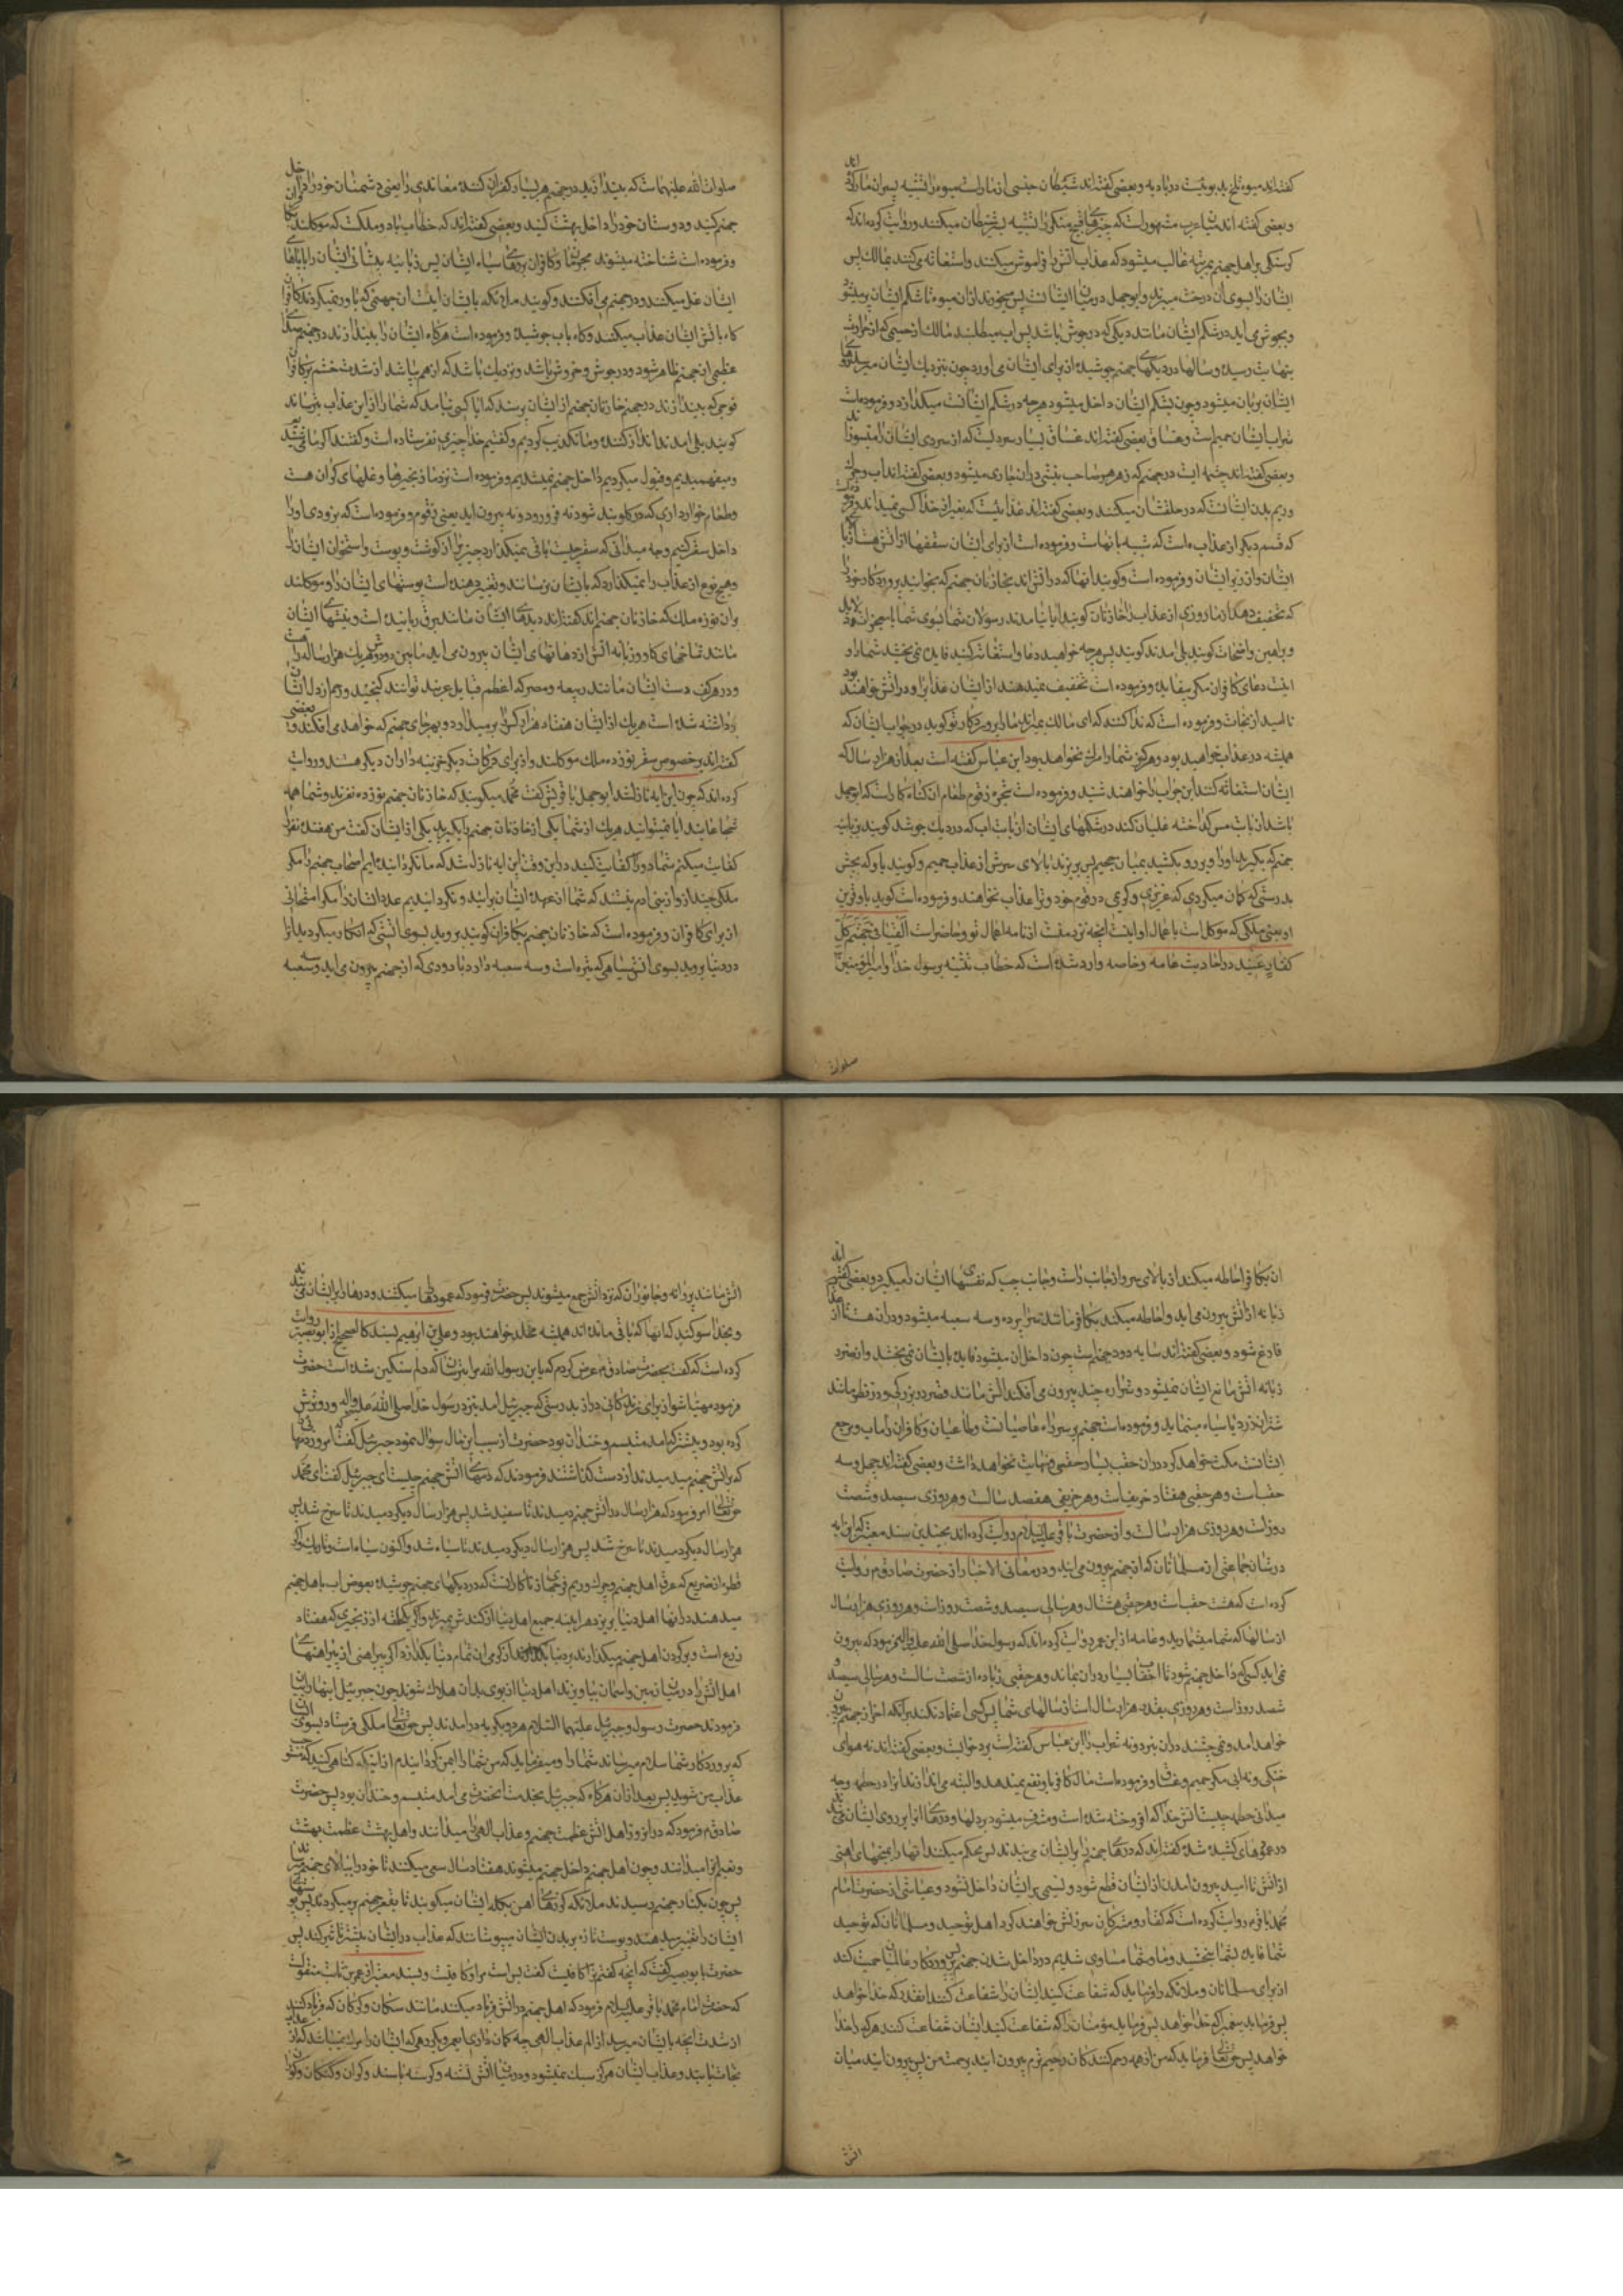 گفته‌اند میوه تلخ بدبوئیست در بادیه و بعضی گفته‌اند شیطان جنسی از مار است میوه را تشبیه بسر آن مار کرده‌اند
و بعضی گفته‌اند میان عرب مشهور است که چیزهای قبیح منکر را تشبیه بشیطان میکنند و روایت کرده‌اند که
گرسنگی بر اهل جهنم بمرتبه غالب میشود که عذاب آتش را فراموش میکنند و استغاثه می‌کنند بمالک پس
ایشان را بسوی آن درخت میبرند و ابوجهل در میان ایشانست پس میخورند از آن میوه تا شکم ایشان پر میشود
و بجوش می‌آید در شکم ایشان مانند دیگی که در جوش باشد پس آب میطلبند مالک از حمیمی که از حرارت
بنهایت رسیده و سالها در دیگهای جهنم جوشیده از برای ایشان می‌آورد چون بنزدیک ایشان میرسد روهای
ایشان بریان میشود و چون بشکم ایشان داخل میشود هرچه در شکم ایشانست میگدازد و فرموده است
شراب ایشان حمیم است و غساق بعضی گفته‌اند غساق بسیار سردیست که از سردی ایشان را میسوزاند
و بعضی گفته‌اند چشمه ایست در جهنم که زهر هر صاحب نیشی در آن جاری میشود و بعضی گفته‌اند آب و چرک
و ریم بدن ایشانست که در حلقشان میکنند و بعضی گفته‌اند عذابیست که بغیر از خدا کسی نمیداند و فرموده است
که قسم دیگر از عذاب هست که شبیه بآنهاست و فرموده است از برای ایشان سقفها از آتش هست از بالای
ایشان و از زیر ایشان و فرموده است و گویند آنها که در آتش‌اند بخازنان جهنم که بخوانید پروردگار خود را
که تخفیف دهد از ما روزی از عذاب را خازنان گویند آیا نیامدند رسولان شما بسوی شما با معجزات
و براهین واضحات گویند بلی آمدند گویند پس هرچه خواهید دعا و استغاثه کنید فایده نمی‌بخشد شما را و
نیست دعای کافران مگر بیفایده و فرموده است تخفیف نمیدهند از ایشان عذاب را و در آتش خواهند بود
ناامید از نجات و فرموده است که ندا کنند که ای مالک بمیراند ما را پروردگار تو گوید در جواب ایشان که
همیشه در عذاب خواهید بود و هرگز شما را مرگ نخواهد بود ابن عباس گفته است بعد از هزار سال که
ایشان استغاثه کنند این جواب را خواهند شنید و فرموده است شجره زقوم طعام آن گناه‌کار است که ابوجهل
باشد از بابت مس گداخته غلیان کند در شکمهای ایشان از بابت آب که در دیک جوشد گویند بزبانیه
جهنم که بگیرید او را و بر رو بکشید بمیان جحیم پس بریزند بالای سرش از عذاب حمیم و گویند باو که بچش
بدرستی که گمان میکردی که عزیزی و کریمی در قوم خود و ترا عذاب نخواهند و فرموده است گوید باو قرین
او یعنی ملکی که موکل است باعمال او اینست آنچه نزد منست از نامه اعمال تو و حاضر است القیا فی جهنم کل
کفار عنید در احادیث عامه و خاصه وارد شده است که خطاب تثنیه برسول خدا و امیرالمؤمنین
صلوات
صلوات الله علیهما است که بیندازید در جهنم هر بسیار کفران کننده معاندی را یعنی دشمنان خود را داخل
جهنم کنید و دوستان خود را داخل بهشت کنید و بعضی گفته‌اند که خطاب باد و ملک است که موکلند
و فرموده است شناخته میشوند مجرمان و کافران بروهای سیاه ایشان پس زبانیه پیشانی ایشان را با پاهای
ایشان غل میکنند و در جهنم می‌افکنند و گویند ملائکه بایشان اینست آن جهنمی که باور نمیکردند کافران
گاه بآتش ایشان عذاب میکنند و گاه بآب جوشیده و فرموده است هرگاه ایشان را بیندازند در جهنم صدای
عظیمی از جهنم ظاهر شود و در جوش و خروش باشد و نزدیک باشد که از هم بپاشد از شدت خشم بر کافران
فوجی که بیندازند در جهنم خازنان جهنم از ایشان پرسند که آیا کسی نیامد که شما را از این عذاب بترساند
گویند بلی آمدند انذار کننده و ما تکذیب کردیم و گفتیم خدا چیزی نفرستاده است و گفتند اگر ما می‌شنیدیم
و میفهمیدیم و قبول میکردیم داخل جهنم نمیشدیم و فرموده است نزد ما زنجیرها و غلهای گران هست
و طعام خارداری که در گلو بند شود نه فرو رود و نه بیرون آید یعنی زقوم و فرموده است که بزودی او را
داخل سقر کنیم و چه میدانی که سقر چیست باقی نمیگذارد چیزی از گوشت و پوست و استخوان ایشان را
و هیچ نوع از عذاب را نمیگذارد که بایشان نرساند و تغییر دهنده است پوستهای ایشان را و موکلند
بر آن نوزده ملک که خازنان جهنم‌اند گفته‌اند دیدهای ایشان مانند برق رباینده است و نیشهای ایشان
مانند شاخهای گاو و زبانه آتش از دهانهای ایشان بیرون می‌آید مابین دو دوش هر یک هزار ساله راه است
و در هر کف دست ایشان مانند ربیعه و مضر که اعظم قبایل عربند توانند گنجید و رحم از دل ایشان
برداشته شده است هر یک از ایشان هفتاد هزار کس را برمیدارد و بهر جای جهنم که خواهد می‌افکند و بعضی
گفته‌اند بر خصوص سقر نوزده ملک موکلند و از برای درکات دیگر خزینه‌داران دیگر هستند و روایت
کرده‌اند که چون این آیه نازل شد ابوجهل با قریش گفت محمد میگوید که خازنان جهنم نوزده نفرند و شما همه
شجاعانید آیا نمیتوانید هر یک از شما یکی از خازنان جهنم را بگیرید یکی از ایشان گفت من هفده نفر را
کفایت میکنم شما دو را کفایت کنید در این وقت این آیه نازل شد که ما نگردانیده‌ایم اصحاب جهنم را مگر
ملکی چند از و از بنی آدم نیستند که شما از عهده ایشان برآئید و نگردانیدیم عدد ایشان را مگر امتحانی
از برای کافران و فرموده است که خازنان جهنم بکافران گویند بروید بسوی آتشی که انکار میکردید آنرا
در دنیا بروید بسوی آتش سیاهی که تیره است و سه شعبه دارد یا دودی که از جهنم بیرون می‌آید و سه شعبه
آن بکافر احاطه میکند از بالای سر و از جانب راست و جانب چپ که نفسهای ایشان را میگیرد و بعضی گفته‌اند
زبانه از آتش بیرون می‌آید و احاطه میکند بکافر مانند سراپرده و سه شعبه میشود و در آن هستند تا از
فارغ شود و بعضی گفته‌اند سایه دود جهنم است چون داخل آن میشود فایده بایشان نمی‌بخشد و از ضرر
زبانه آتش مانع ایشان نمیشود و شراره چند بیرون می‌افکند آتش مانند قصر در بزرگی و در نظر مانند
شتران زرد یا سیاه مینماید و فرموده است جهنم بر سر راه عاصیانست و طاغیان و کافران را مآب و مرجع
ایشانست مکث خواهد کرد در آن حقب بسیار حقبی که نهایت نخواهد داشت و بعضی گفته‌اند چهل و سه
حقب است و هر حقبی هفتاد خریف است و هر خریفی هفتصد سالست و هر روزی سیصد و شصت
روز است و هر روزی هزار سالست و از حضرت باقر علیه السلام روایت کرده‌اند بچندین سند معتبر که این آیه
در شأن جماعتی از مسلمانان که از جهنم بیرون می‌آیند و در معانی الاخبار از حضرت صادق ع روایت
کرده است که هشت حقب است و هر حقبی هشتاد سال و هر سالی سیصد و شصت روز است و هر روزی هزار سال
از سالها که شما میشمارید و عامه از ابن عمر روایت کرده‌اند که رسول خدا صلی الله علیه واله فرمود که بیرون
نمی‌آید کسی که داخل جهنم شود تا احقاب بسیار در آن بماند و هر حقبی زیاده از شصت سالست و هر سالی سیصد و
شصت روز است و هر روزی بقدر هزار سال است از سالهای شما پس کسی اعتماد نکند بر آنکه آخر از جهنم بیرون
خواهد آمد و نمی‌چشند در آن نه برد و نه شراب را ابن عباس گفته است برد خوابست و بعضی گفته‌اند نه هوای
خنکی و نه آبی مگر حمیم و غساق و فرموده است مال کافر باو نفع نمیدهد و البته می‌اندازند او را در حطمه و چه
میدانی حطمه چیست آتش خداست که افروخته شده است و مشرف میشود بر دلها و درهای آنرا بر روی ایشان می‌بندند
در عمودهای کشیده شده گفته‌اند که درهای جهنم را بر ایشان می‌بندند پس محکم میکنند آنها را بمیخهای آهنی
از آتش تا امید بیرون آمدن از ایشان قطع شود و نسیمی بر ایشان داخل نشود و عیاشی از حضرت امام
محمد باقر ع روایت کرده است که کفار و مشرکان سرزنش خواهند کرد اهل توحید و مسلمانان که توحید
شما فایده بشما نبخشید و ما و شما مساوی شدیم در داخل شدن جهنم پس پروردگار عالمیان حمیت کند
از برای مسلمانان و ملائکه را فرماید که شفاعت کنید ایشان را شفاعت کنند آنقدر که خدا خواهد
پس فرماید پیغمبر که خدا خواهد پس فرماید مؤمنان را که شفاعت کنید ایشان شفاعت کنند هر که را خدا
خواهد پس حق تعالی فرماید که من از همه رحم‌کنندگان رحیم‌ترم بیرون آئید برحمت من پس بیرون آیند میان
آتش
آتش مانند پروانه و جانوران که نزد آتش جمع میشوند پس حضرت فرمود که عمودها میکشند و درها را بر ایشان می‌بندند
و بخدا سوگند که آنها که باقی مانده‌اند همیشه مخلد خواهند بود و علی بن ابراهیم بسند کالصحیح از ابو بصیر روایت
کرده است که گفت بحضرت صادق ع عرض کردم که یابن رسول الله مرا بترسان که دلم سنگین شده است حضرت
فرمود مهیا شو از برای زندگانی دراز بدرستی که جبرئیل آمد بنزد رسول خدا صلی الله علیه واله و رو ترش
کرده بود و پیشتر که می‌آمد متبسم و خندان بود حضرت از سبب این حال سؤال نمود جبرئیل گفت امروز دمهائی
که بر آتش جهنم میدمیدند از دست گذاشتند فرمودند که دمهای آتش جهنم چیست ای جبرئیل گفت ای محمد
حق تعالی امر فرمود که هزار سال در آتش جهنم دمیدند تا سفید شد پس هزار سال دیگر دمیدند تا سرخ شد پس
هزار سال دیگر دمیدند تا سیاه شد و اکنون سیاه است و تاریک و اگر
قطره از ضریع که عرق اهل جهنم و چرک و ریم فرجهای زناکارانست که در دیگهای جهنم جوشیده بعوض آب باهل جهنم
میدهند در آبهای اهل دنیا بریزند هر آینه جمیع اهل دنیا از گندش بمیرند و اگر یک حلقه از زنجیری که هفتاد
ذرع است و بر گردن اهل جهنم میگذارند بر دنیا بگذارند از گرمی آن تمام دنیا بگدازد و اگر پیراهنی از پیراهنهای
اهل آتش را در میان زمین و آسمان بیاویزند اهل دنیا از بوی بد آن هلاک شوند چون جبرئیل اینها را بیان
فرمودند حضرت رسول و جبرئیل علیهما السلام هر دو بگریه در آمدند پس حق تعالی ملکی فرستاد بسوی ایشان
که پروردگار شما سلام میرساند شما را و میفرماید که من شما را ایمن گردانیدم از اینکه گناهی کنید که مستوجب
عذاب من شوید پس بعد از آن هرگاه که جبرئیل بخدمت آنحضرت می‌آمد متبسم و خندان بود پس حضرت
صادق ع فرمود که در آن روز اهل آتش عظمت جهنم و عذاب الهی را میدانند و اهل بهشت عظمت بهشت
و نعیم آنرا میدانند و چون اهل جهنم داخل جهنم میشوند هفتاد سال سعی میکنند تا خود را ببالای جهنم میرسانند
پس چون بکنار جهنم رسیدند ملائکه گرزهای آهن بکله ایشان میکوبند تا بقعر جهنم برمیگردند پس پوستهای
ایشان را تغییر میدهند و پوست تازه بر بدن ایشان میپوشانند که عذاب در ایشان بیشتر تأثیر کند پس
حضرت بابوبصیر گفت که آنچه گفتم ترا کافیست گفت بس است مرا و کافیست و بسند معتبر از عمر بن ثابت منقولست
که حضرت امام محمد باقر علیه السلام فرمود که اهل جهنم در آتش فریاد میکنند مانند سگان و گرگان که فریاد کنند
از شدت آنچه بایشان میرسد از الم عذاب الهی چه گمان داری ای عمرو بگروهی که ایشان را مرگ نمیباشد که از عذاب
نجات یابند و عذاب ایشان هرگز سبک نمیشود و در میان آتش تشنه و گرسنه باشند و کران و گنگان و کوران